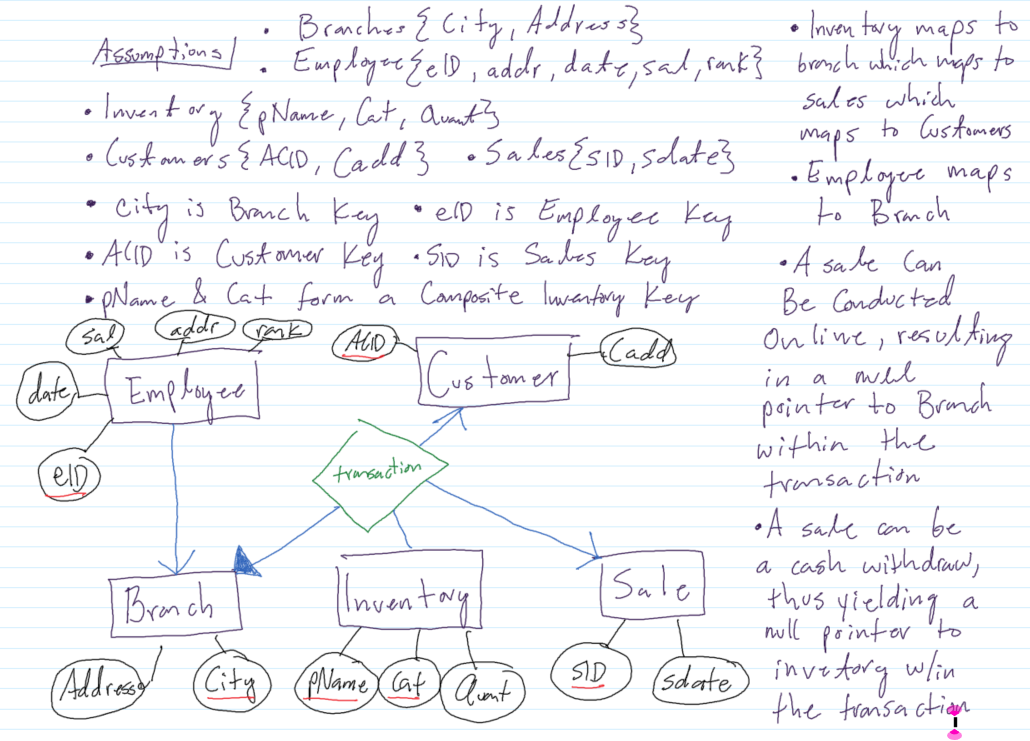 Assumptions
• Branches{City, Address}
• Employee{eID, addr, date, sal, rank}
• Inventory {pName, Cat, Quant}
• Customers{ACID, Cadd} • Sales{SID, Sdate}
• City is Branch Key • eID is Employee Key
• ACID is Customer Key • SID is Sales Key
• pName & Cat form a Composite Inventory Key
• Inventory maps to
branch which maps to
sales which
maps to Customers
• Employee maps
to Branch
• A sale Can
Be Conducted
Online, resulting
in a null
pointer to Branch
within the
transaction
• A sale can be
a cash withdraw,
thus yielding a
null pointer to
invetory w/in
the transaction
sal
addr
rank
date
Employee
eID
ACID
Customer
Cadd
transaction
Branch
Inventory
Sale
Address
City
pName
Cat
Quant
SID
sdate